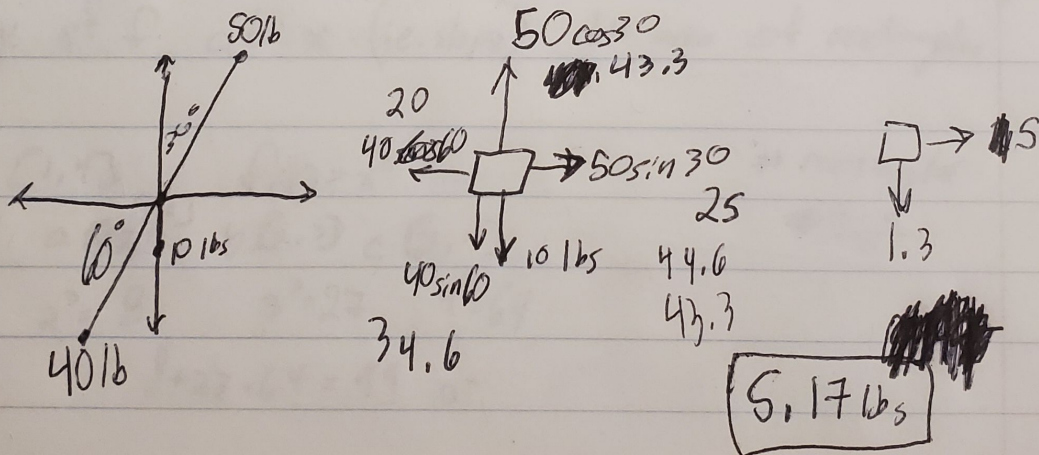 50lb
30°
60°
10 lbs
40lb
50cos30
43.3
20
40cos60
50sin30
25
40sin60
10 lbs
34.6
44.6
43.3
5
1.3
5.17lbs